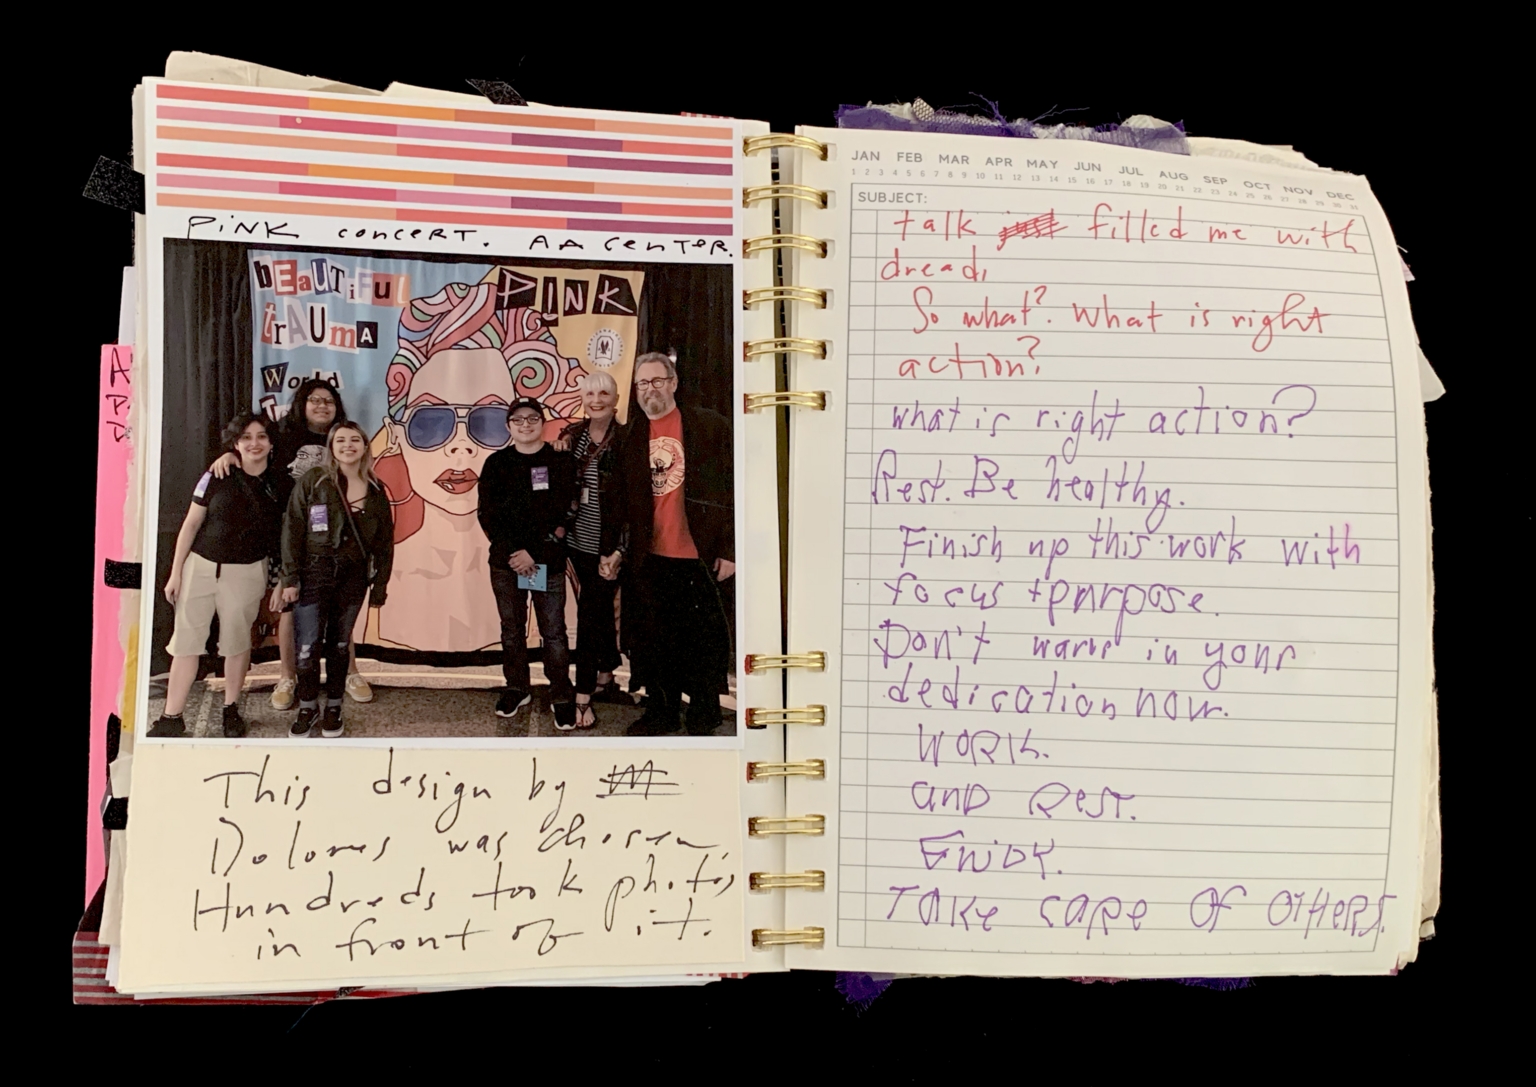 PiNK concert. AA center.
bEaUTiFUL
trAUmA
World
PINK
This design by
Dolores was chosen.
Hundreds took photos
in front of it.
JAN FEB MAR APR MAY JUN JUL AUG SEP OCT NOV DEC
1 2 3 4 5 6 7 8 9 10 11 12 13 14 15 16 17 18 19 20 21 22 23 24 25 26 27 28 29 30 31
SUBJECT:
talk filled me with
dread.
So what? What is right
action?
what is right action?
Rest. Be healthy.
Finish up this work with
focus + purpose.
Don't in your
dedication now.
WORK.
AND REST.
ENJOY.
TAKE CARE OF OTHERS.